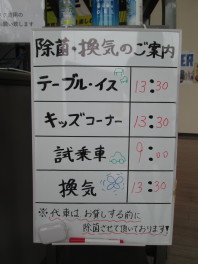 除菌・換気のご案内
テーブル・イス 13:30
キッズコーナー 13:30
試乗車 9:00
換気 13:30
※代車は お貸しする前に
除菌させて頂いております!